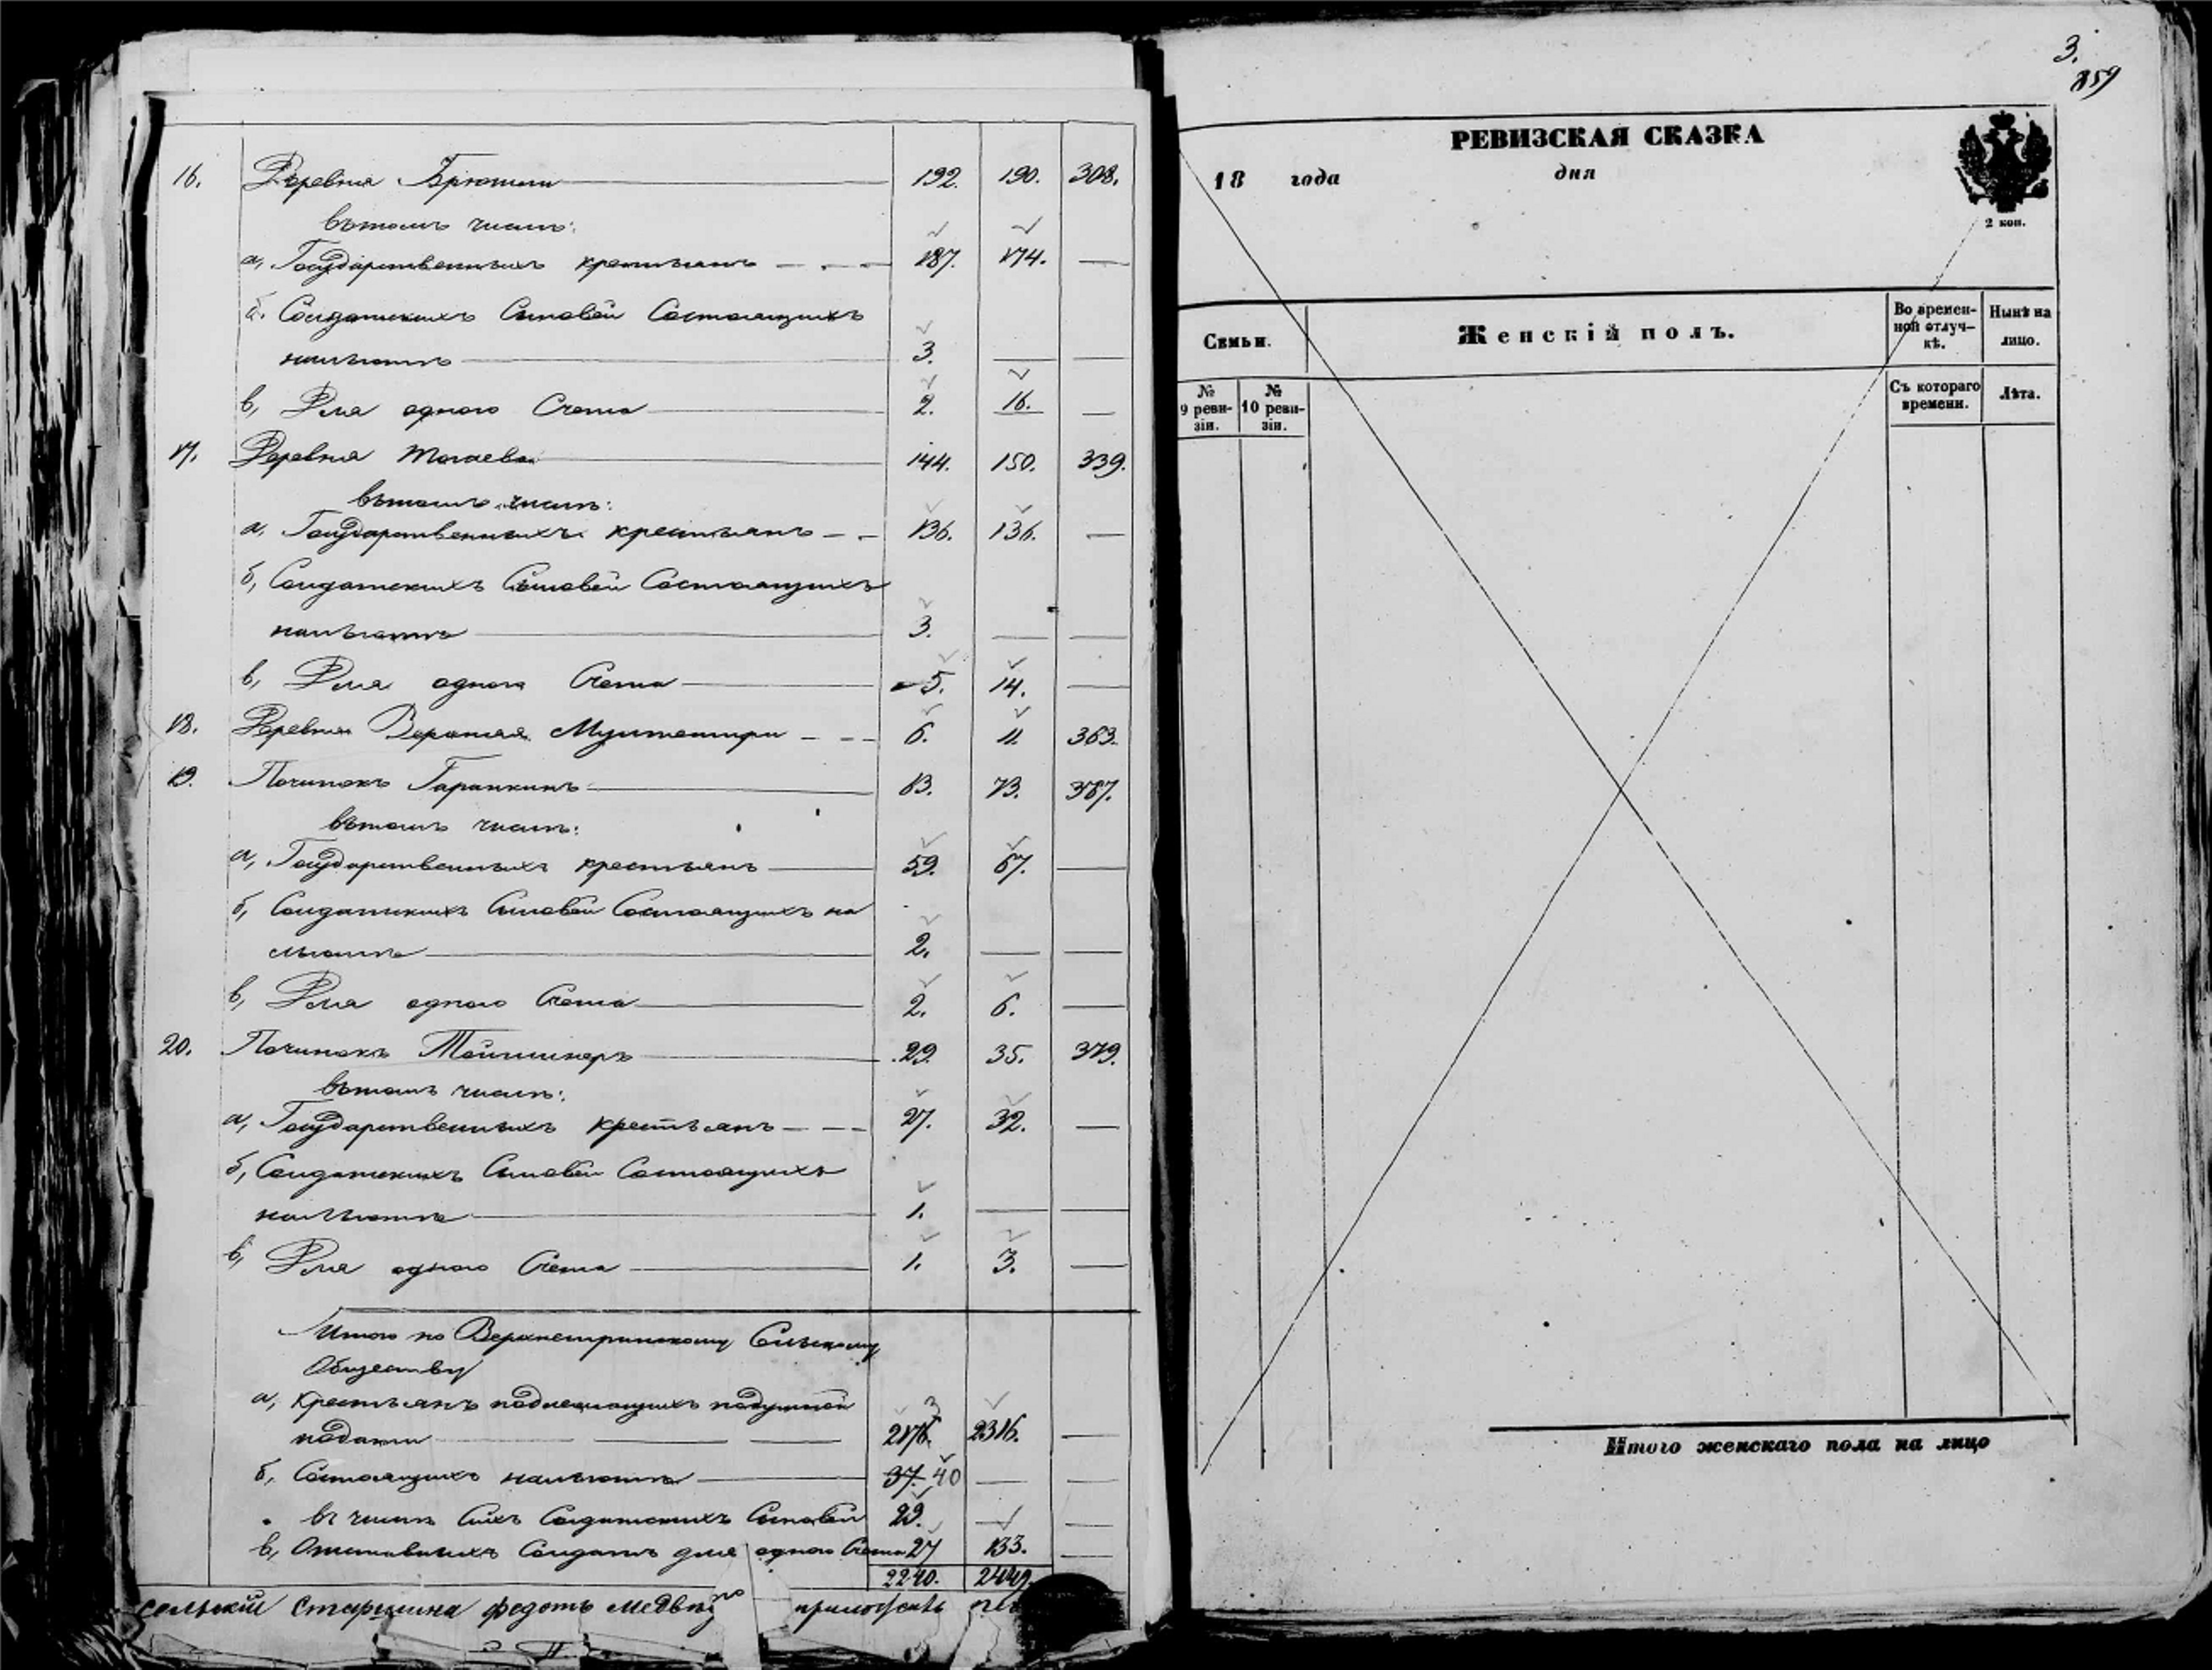 16. Деревня Брюшли 192. 190. 308.
въ томъ числѣ:
а, Государственныхъ крестьянъ 187. 174.
б. Солдатскихъ Сыновей Состоящихъ
на льготѣ 3.
в, Для одного Счета 2. 16.
17. Деревня 144. 150. 339.
въ томъ числѣ:
а, Государственныхъ крестьянъ 136. 136.
б, Солдатскихъ Сыновей Состоящихъ
на льготѣ 3.
в, Для одного Счета 5. 14.
18. Деревня Верхняя 6. 11. 363.
19. Починокъ Гаранкинъ 63. 73. 367.
въ томъ числѣ:
а, Государственныхъ крестьянъ 59. 67.
б, Солдатскихъ Сыновей Состоящихъ на
льготѣ 2.
в, Для одного Счета 2. 6.
20. Починокъ 29. 35. 379.
въ томъ числѣ:
а, Государственныхъ крестьянъ 27. 32.
б, Солдатскихъ Сыновей Состоящихъ
на льготѣ 1.
в, Для одного Счета 1. 3.
Итого по Сельскому
Обществу
а, крестьянъ подлежащихъ подушной
подати 2176. 3 2316.
б, Состоящихъ на льготѣ 37. 40
въ числѣ сихъ Солдатскихъ Сыновей 29.
в, Отставныхъ Солдатъ для одного Счета 27 133.
2240. 2449.
сельскій Старшина федотъ Медвѣд
3.
859
РЕВИЗСКАЯ СКАЗКА
18 года дня
2 коп.
Семьи.
Женскій полъ.
Во времен-
ной отлуч-
кѣ.
Нынѣ на
лицо.
№
9 реви-
зіи.
№
10 реви-
зіи.
Съ котораго
времени.
Лѣта.
Итого женскаго пола на лицо